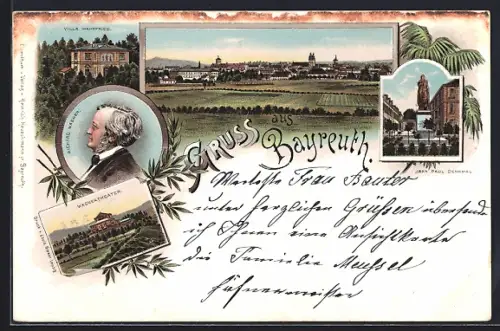 VILLA WAHNFRIED.
RICHARD WAGNER.
WAGNERTHEATER.
JEAN PAUL DENKMAL.
Gruss aus
Bayreuth.
Werteste Frau
unter herzlichen Grüßen übersende
ich Ihnen eine Ansichtkarte
die Familie Meussel
Hafnermeister